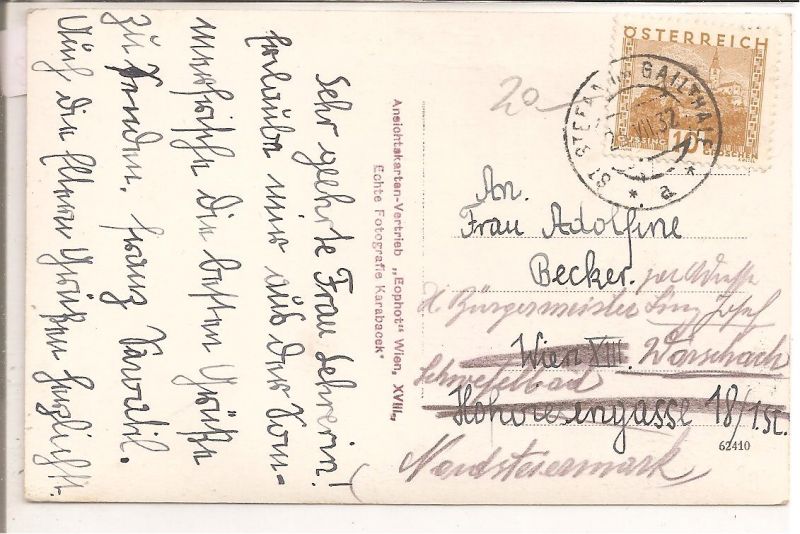 Sehr geehrte Frau Lehrerin!
Erlaube mir aus der Som-
merfrische die besten Grüße
zu senden. Franz
Auch die Eltern Grüßen herzlichst.
Ansichtskarten-Vertrieb „Eophot“ Wien, XVIII.,
Echte Fotografie Karabacek“
20
ÖSTERREICH
10
ST. STEFAN IM GAILTHALE
VIII 32
* a *
An.
Frau Adolfine
Becker. per Adresse
H Bürgermeister Josef
Wien XIII. Wörschach
Schwefelbad
gasse 18/1 St.
Nordsteiermark
62410